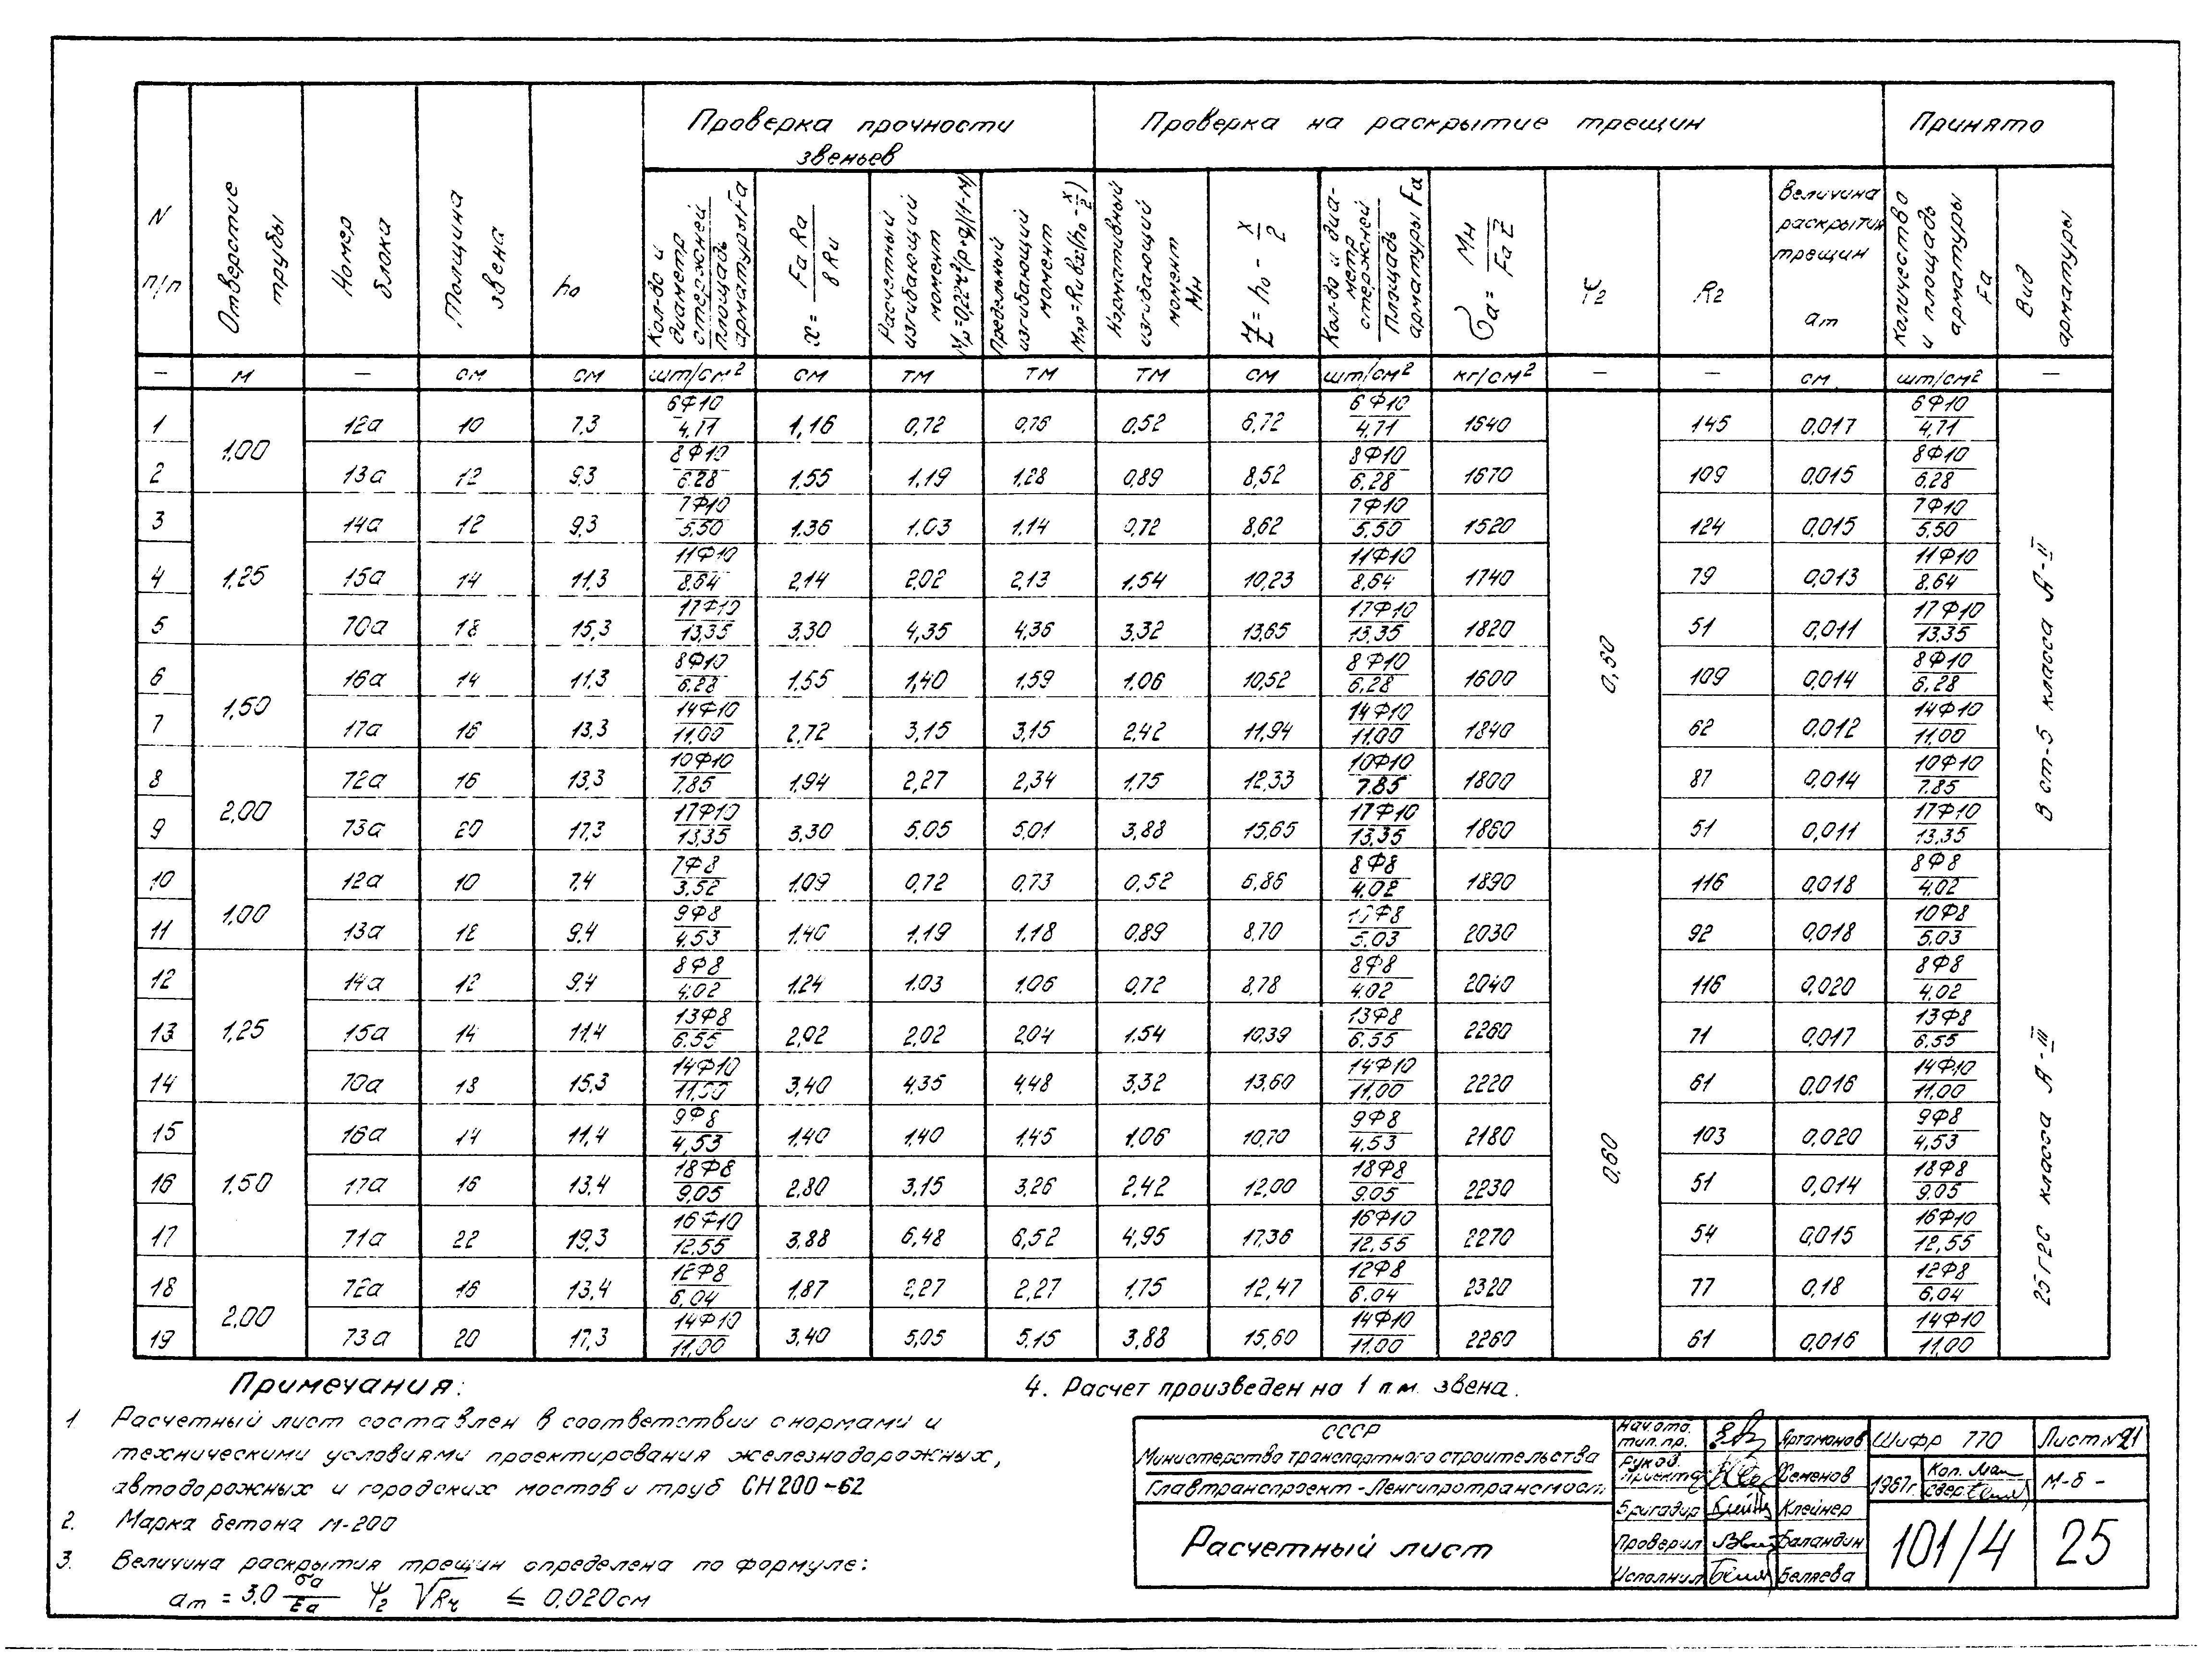 Проверка прочности звеньев
Проверка на раскрытие трещин
Принято
N п/п
Отверстие трубы
Номер блока
Толщина звена
h₀
Кол-во и диаметр стержней / площадь арматуры Fa
x = Fa Ra / b Ru
Расчетный изгибающий момент
Предельный изгибающий момент
Нормативный изгибающий момент Mн
Z = h₀ - x/2
Кол-во и диаметр стержней / Площадь арматуры Fa
σa = Mн / Fa Z
Ψ₂
R₂
Величина раскрытия трещин aт
Количество и площадь арматуры Fa
Вид арматуры
– м – см см шт/см² см тм тм тм см шт/см² кг/см² – – см шт/см² –
1 1,00 12а 10 7,3 6Ф10/4,71 1,16 0,72 0,76 0,52 6,72 6Ф10/4,71 1640 0,50 145 0,017 6Ф10/4,71 В ст-5 класса А-II
2 13а 12 9,3 8Ф10/6.28 1,55 1,19 1,28 0,89 8,52 8Ф10/6.28 1670 109 0,015 8Ф10/6,28
3 1,25 14а 12 9,3 7Ф10/5,50 1.36 1.03 1.14 0,72 8,62 7Ф10/5,50 1520 124 0,015 7Ф10/5,50
4 15а 14 11,3 11Ф10/8,64 2,14 2,02 2,13 1,54 10,23 11Ф10/8,64 1740 79 0,013 11Ф10/8,64
5 70а 18 15,3 17Ф10/13,35 3,30 4,35 4,36 3,32 13,65 17Ф10/13,35 1820 51 0,011 17Ф10/13,35
6 1,50 16а 14 11,3 8Ф10/6.28 1,55 1,40 1,59 1.06 10,52 8Ф10/6,28 1600 109 0,014 8Ф10/6,28
7 17а 16 13,3 14Ф10/11,00 2,72 3,15 3,15 2,42 11,94 14Ф10/11.00 1840 62 0,012 14Ф10/11,00
8 2,00 72а 16 13,3 10Ф10/7,85 1,94 2,27 2,34 1,75 12,33 10Ф10/7.85 1800 87 0,014 10Ф10/7.85
9 73а 20 17,3 17Ф10/13,35 3,30 5.05 5,01 3,88 15,65 17Ф10/13,35 1860 51 0,011 17Ф10/13,35
10 1,00 12а 10 7,4 7Ф8/3,52 1.09 0,72 0,73 0,52 6,86 8Ф8/4.02 1890 0,60 116 0,018 8Ф8/4,02 25Г2С класса А-III
11 13а 12 9,4 9Ф8/4.53 1.40 1,19 1.18 0,89 8,70 10Ф8/5.03 2030 92 0,018 10Ф8/5,03
12 1,25 14а 12 9,4 8Ф8/4,02 1.24 1.03 1.06 0,72 8,78 8Ф8/4.02 2040 116 0,020 8Ф8/4,02
13 15а 14 11,4 13Ф8/6.55 2,02 2,02 2,04 1.54 10,39 13Ф8/6,55 2260 71 0,017 13Ф8/6,55
14 70а 18 15,3 14Ф10/11,00 3,40 4,35 4,48 3,32 13,60 14Ф10/11,00 2220 61 0,016 14Ф10/11,00
15 1,50 16а 14 11,4 9Ф8/4,53 1,40 1,40 1,45 1.06 10,70 9Ф8/4,53 2180 103 0,020 9Ф8/4,53
16 17а 16 13,4 18Ф8/9,05 2,80 3,15 3,26 2,42 12,00 18Ф8/9.05 2230 51 0,014 18Ф8/9.05
17 71а 22 19,3 16Ф10/12,55 3,88 6,48 6,52 4,95 17,36 16Ф10/12,55 2270 54 0,015 16Ф10/12,55
18 2,00 72а 16 13,4 12Ф8/6,04 1,87 2,27 2,27 1,75 12,47 12Ф8/6.04 2320 77 0,18 12Ф8/6,04
19 73а 20 17,3 14Ф10/11,00 3,40 5,05 5,15 3,88 15,60 14Ф10/11.00 2260 61 0,016 14Ф10/11,00
Примечания:
1 Расчетный лист составлен в соответствии с нормами и
техническими условиями проектирования железнодорожных,
автодорожных и городских мостов и труб СН 200-62
2. Марка бетона М-200
3. Величина раскрытия трещин определена по формуле:
aт = 3,0 σa/Ea Ψ₂ √Rч ≤ 0,020см
4. Расчет произведен на 1 п.м. звена.
СССР
Министерство транспортного строительства
Главтранспроект - Ленгипротрансмост
Расчетный лист
Нач.отд. тип.пр. Артамонов
Руков. проекта Семенов
Бригадир Клейнер
Проверил Баландин
Исполнил Беляева
Шифр 770
Лист N 21
1967г. Коп. Свер.
М-б -
101/4
25